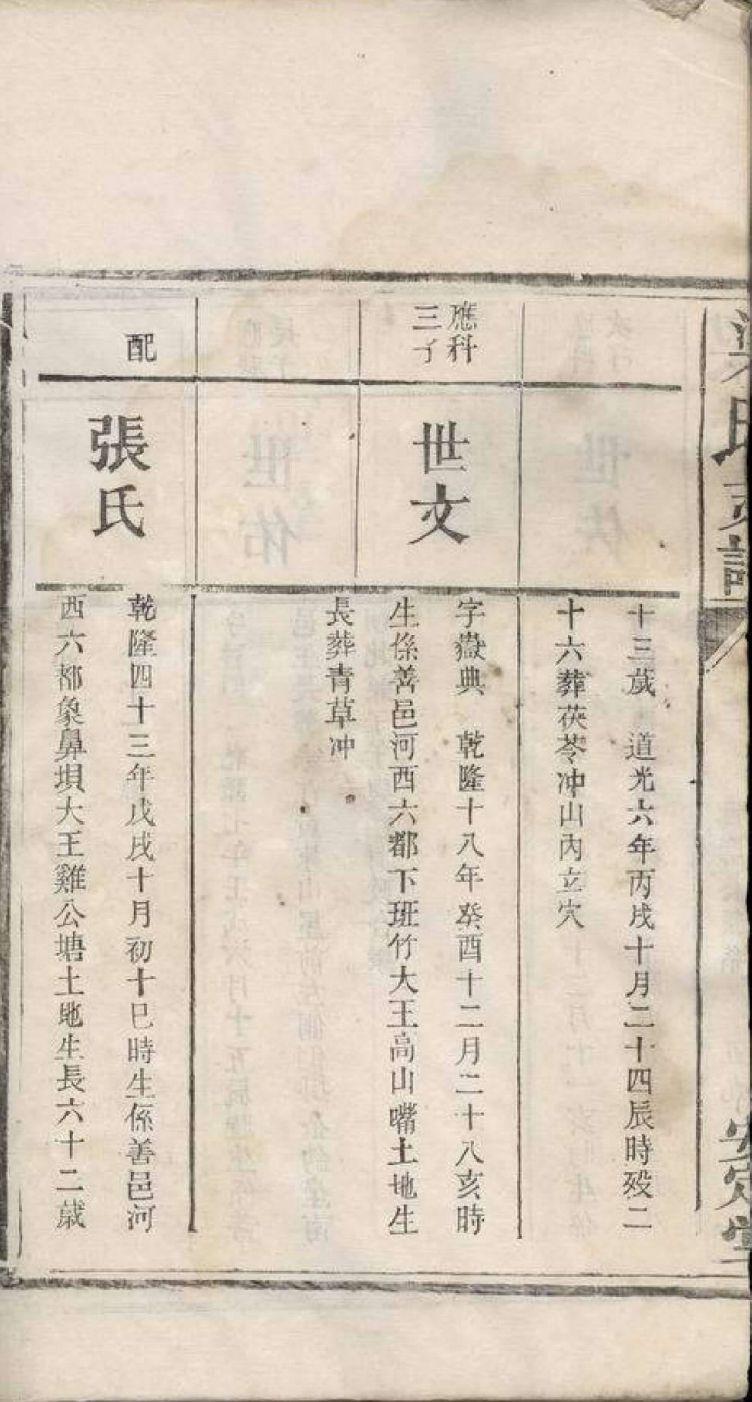 梁氏支譜
安定堂
十三歲 道光六年丙戌十月二十四辰時殁二
十六葬茯苓冲山內立穴
應科
三子
世文
字嶽典 乾隆十八年癸酉十二月二十八亥時
生係善邑河西六都下班竹大王高山嘴土地生
長葬青草冲
配
張氏
乾隆四十三年戊戌十月初十巳時生係善邑河
西六都象鼻垻大王雞公塘土地生長六十二歲